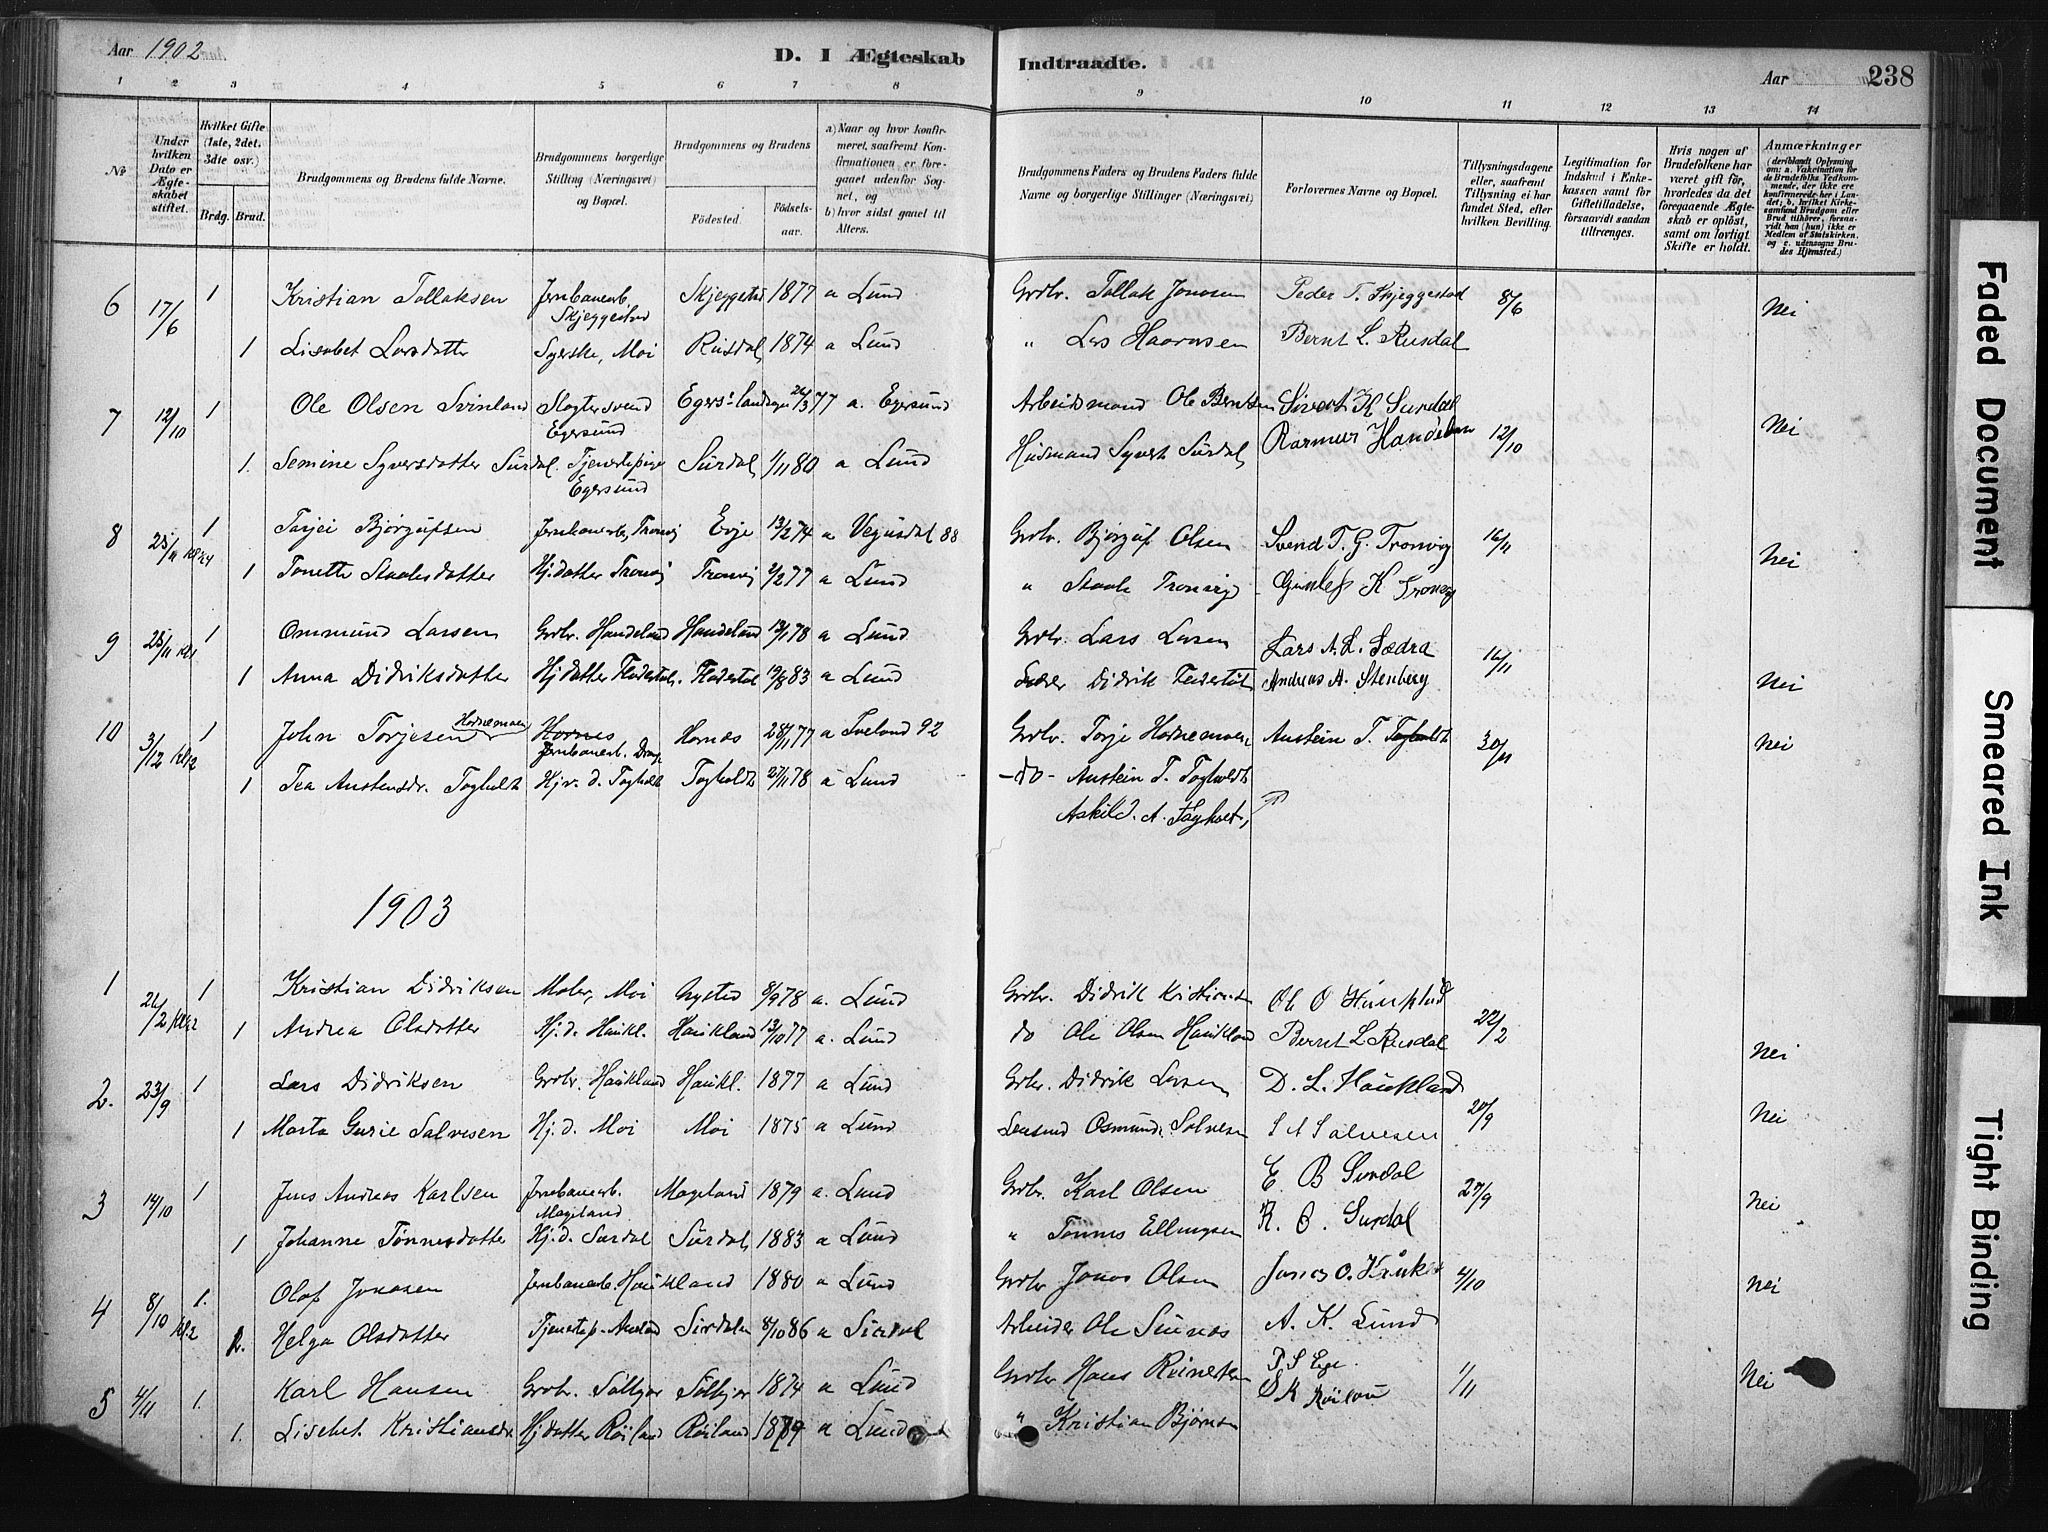 Aar 1902
D. I Ægteskab Indtraadte.
Aar 238
1 2 3 4 5 6 7 8 9 10 11 12 13 14
No
Under hvilken Dato er Ægteskabet stiftet.
Hvilket Gifte (1ste, 2det, 3die osv.)
Brdg. Brud.
Brudgommens og Brudens fulde Navne.
Brudgommens borgerlige Stilling (Næringsvei) og Bopæl.
Brudgommens og Brudens
Fødested. Fødselsaar.
a) Naar og hvor konfirmeret, saafremt Konfirmationen er foregaaet udenfor Sognet, og
b) hvor sidst gaaet til Alters.
Brudgommens Faders og Brudens Faders fulde Navne og borgerlige Stillinger (Næringsvei)
Forlovernes Navne og Bopæl.
Tillysningsdagene eller, saafremt Tillysning ei har fundet Sted, efter hvilken Bevilling.
Legitimation for Indskud i Enkekassen samt for Giftetilladelse, forsaavidt saadan tiltrænges.
Hvis nogen af Brudefolkene har været gift før, hvorledes da det foregaaende Ægteskab er opløst, samt om lovligt Skifte er holdt.
Anmærkninger
(deriblandt Oplysning om: a. Vakcination for de Brudefolks Vedkommende, der ikke ere konfirmerede her i Landet; b. hvilket Kirkesamfund Brudgom eller Brud tilhører, forsaavidt han (hun) ikke er Medlem af Statskirken, og c. udensogns Brudes Hjemsted.
6 17/6 1 Kristian Tollaksen Jernbanearb. Skjeggestad Skjeggestad 1877 a Lund Grdbr. Tollak Jonasen Peder T. Skjeggestad 8/6 Nei
1 Lisabet Larsdatter Syerske, Moi Rusdal 1874 a Lund " Lars Haavasen Bernt L. Rusdal
7 12/10 1 Ole Olsen Svinland Slagtersvend Egersund Egers. landsogn 26/3 77 a. Egersund Arbeidsmand Ole Berntsen Sivert K Surdal 12/10 Nei
1. Semine Syversdatter Surdal. Tjenestepige Egersund Surdal 1/11 80 a Lund Husmand Syvert Surdal Rasmus Handeland
8 25/11 Kl. 4 1 Tarjei Bjørgufsen Jernbanearb, Tronvig Evje 13/2 74 a Vegusdal 88 Grdbr. Bjørguf Olsen Svend T. G. Tronvig 16/11 Nei
1 Tonette Staalesdatter Hj. datter Tronvig Tronvig 2/2 77 a Lund " Staale Tronvig Gunlef K Tronvig
9 25/11 Kl 1 1 Ommund Larsen Grdbr. Handeland Handeland 13/1 78 a Lund Grdbr. Lars Larsen Lars A. L. Sædra 16/11 Nei
1 Anna Didriksdatter Hj datter 19/8 83 a Lund Didrik Andreas A. Stenberg
10 3/12 Kl 2 1 John Torjesen Hornemoen Hornes Jernbanearb. Hornæs 28/11 77 a Iveland 92 Grdbr. Torje Hornemoen Austein T. Togholdt 30/11 Nei
1 Tea Austensdr. Togholdt Hjv. d. Togholdt Togholdt 27/11 78 a Lund - do - Austein T. Togholdt
Askild. A. Togholt,
1903
1 26/2 Kl. 2 1 Kristian Didriksen Maler, Moi Nysted 8/9 78 a. Lund Grdbr. Didrik Kristians Ole O 22/2 Nei
1 Andrea Olsdatter Hj. d. Haukl. Haukland 13/10 77 a. Lund do Ole Olsen Haukland Bernt L Rusdal
2. 23/9 1 Lars Didriksen Grdbr. Haukland Haukl. 1877 a Lund Grbr. Didrik Larsen D. L. Haukland 20/9 Nei
1 Marta Gurie Salvesen Hj. d. Moi Moi 1875 a Lund Lensmd Osmund Salvesen S A Salvesen
3 14/10 1 Jens Andreas Karlsen Jernbanearb. Mageland Mageland 1879 a. Lund Grdbr. Karl Olsen E. B Surdal 27/9 Nei
1 Johanne Tønnesdatter Hj. d. Surdal Surdal 1883 a Lund " Tønnes Ellingsen R. O. Surdal
4 8/10 Kl. 2 1. Olaf Jonasen Jernbanearb. Haukland 1880 a Lund Grdbr Jonas Olsen Jonas O. 4/10 Nei
1. Helga Olsdatter Tjenestep. Sirdalen 8/10 86 a Sirdal Arbeider Ole A. K. Lund
5 4/11 1. Karl Hansen Grdbr. 1874 a Lund Grdbr Hans P S Ege 1/11 Nei
1. Lisebet Kristiansdr Hj datter Røiland Røiland 1879 a Lund " Kristian Bjørnsen S K Røiland
Faded Document
Smeared Ink
Tight Binding